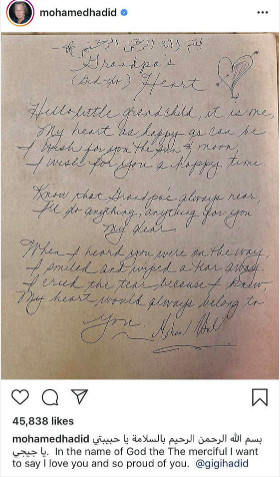 mohamedhadid
بسم الله الرحمن الرحيم
Grandpa's
Heart
Hello little grandchild, it is me,
My heart as happy as can be
I wish for you the sun & moon
I wish for you a happy time
Know that Grandpa's always near,
I'll do anything, anything for you
My dear
When I heard you were on the way,
I smiled and wiped a tear away.
I cried the tear because I knew
My heart would always belong to
you.
45,838 likes
mohamedhadid بسم الله الرحمن الرحيم بالسلامة يا حبيبتي
يا جيجي. In the name of God the The merciful I want
to say I love you and so proud of you. @gigihadid